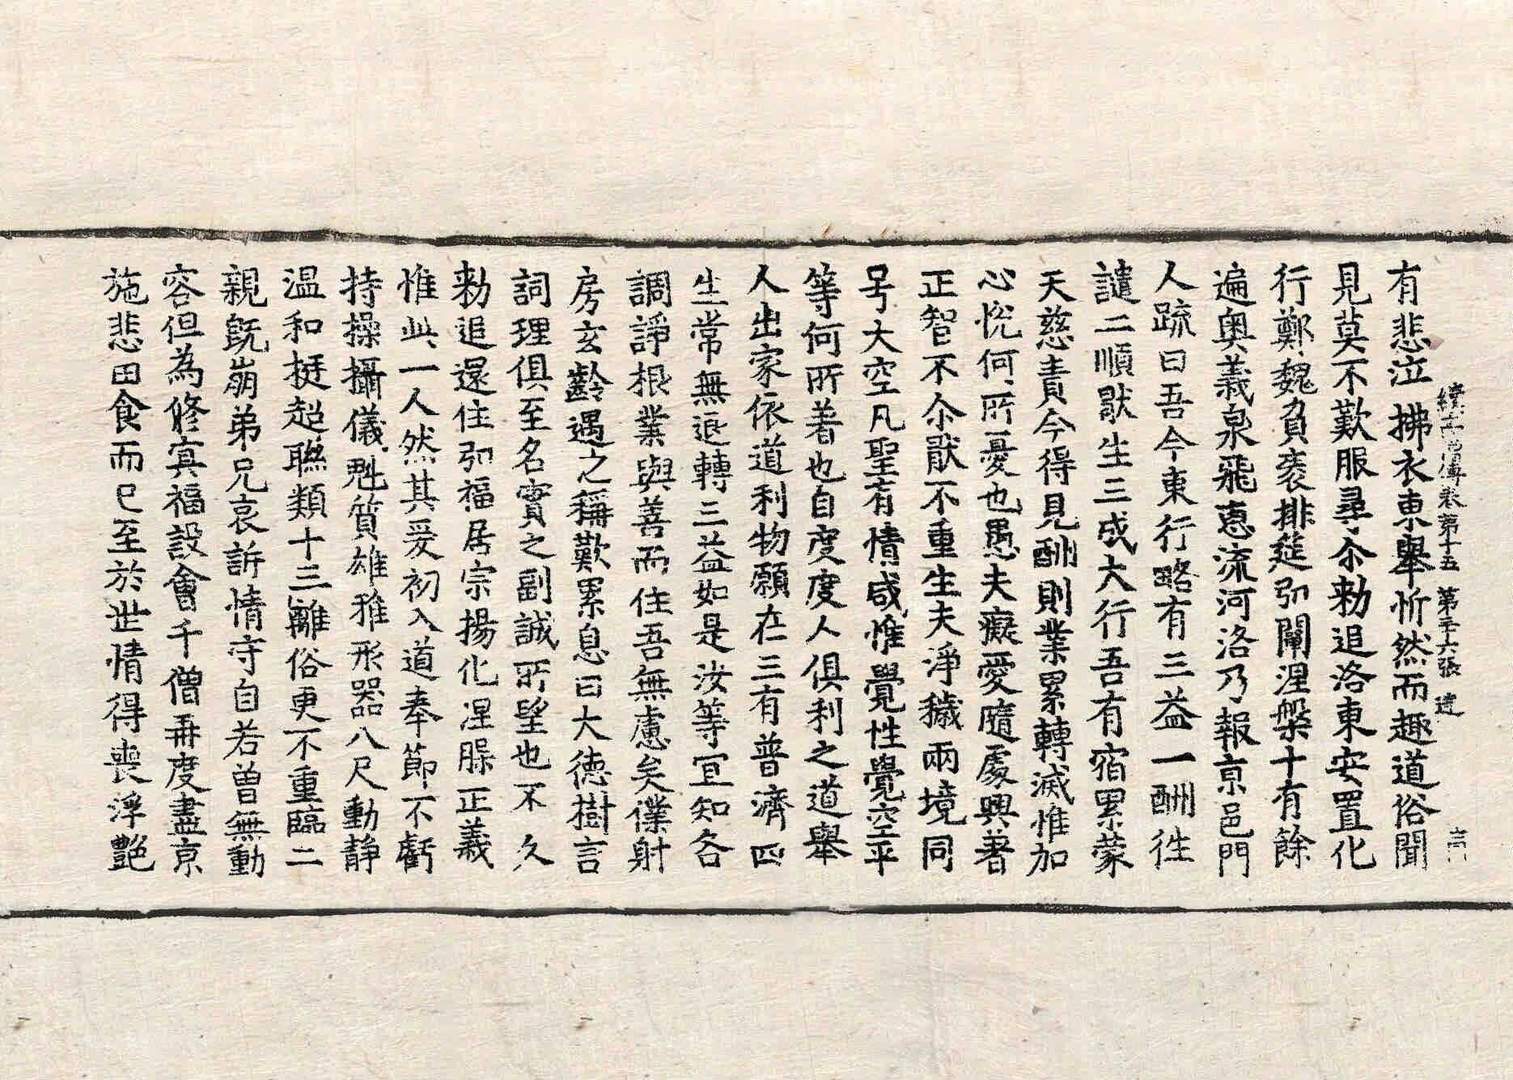 有悲泣拂衣東舉忻然而趣道俗聞
續高僧傳卷第十五 第二十六張 達
見莫不歎服尋尒勑追洛東安置化
行鄭魏負袠排筵弘闡涅槃十有餘
遍奥義泉飛惠流河洛乃報京邑門
人䟽曰吾今東行略有三益一酬徃
譴二順猒生三成大行吾有宿累蒙
天慈責今得見酬則業累轉滅惟加
心恱何所憂也愚夫癡愛隨處興著
正智不尒猒不重生夫淨穢兩境同
号大空凡聖有情咸惟覺性覺空平
等何所著也自度度人俱利之道舉
人出家依道利物願在三有普濟四
生常無退轉三益如是汝等宜知各
調諍根業與善而住吾無慮矣僕射
房玄齡遇之稱歎累息曰大德樹言
詞理俱至名實之副誠所望也不久
勑追還住弘福居宗揚化涅䏶正義
惟此一人然其爰初入道奉節不虧
持操攝儀魁質雄雅形器八尺動静
温和挺超聯類十三離俗更不重臨二
親旣崩弟兄哀訴情守自若曾無動
容但為修冥福設會千僧再度盡京
施悲田食而已至於世情得喪浮艶